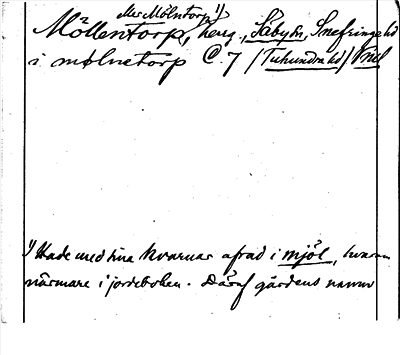 Mölntorp 1)
Möllentorp, herrg., Säby sn, Snefringe hd
i mølnetorp C. 7 (Tuhundra hd) Vml
1) Hade med sina kvarnar afrad i mjöl, hvarom
närmare i jordeboken. Däraf gårdens namn